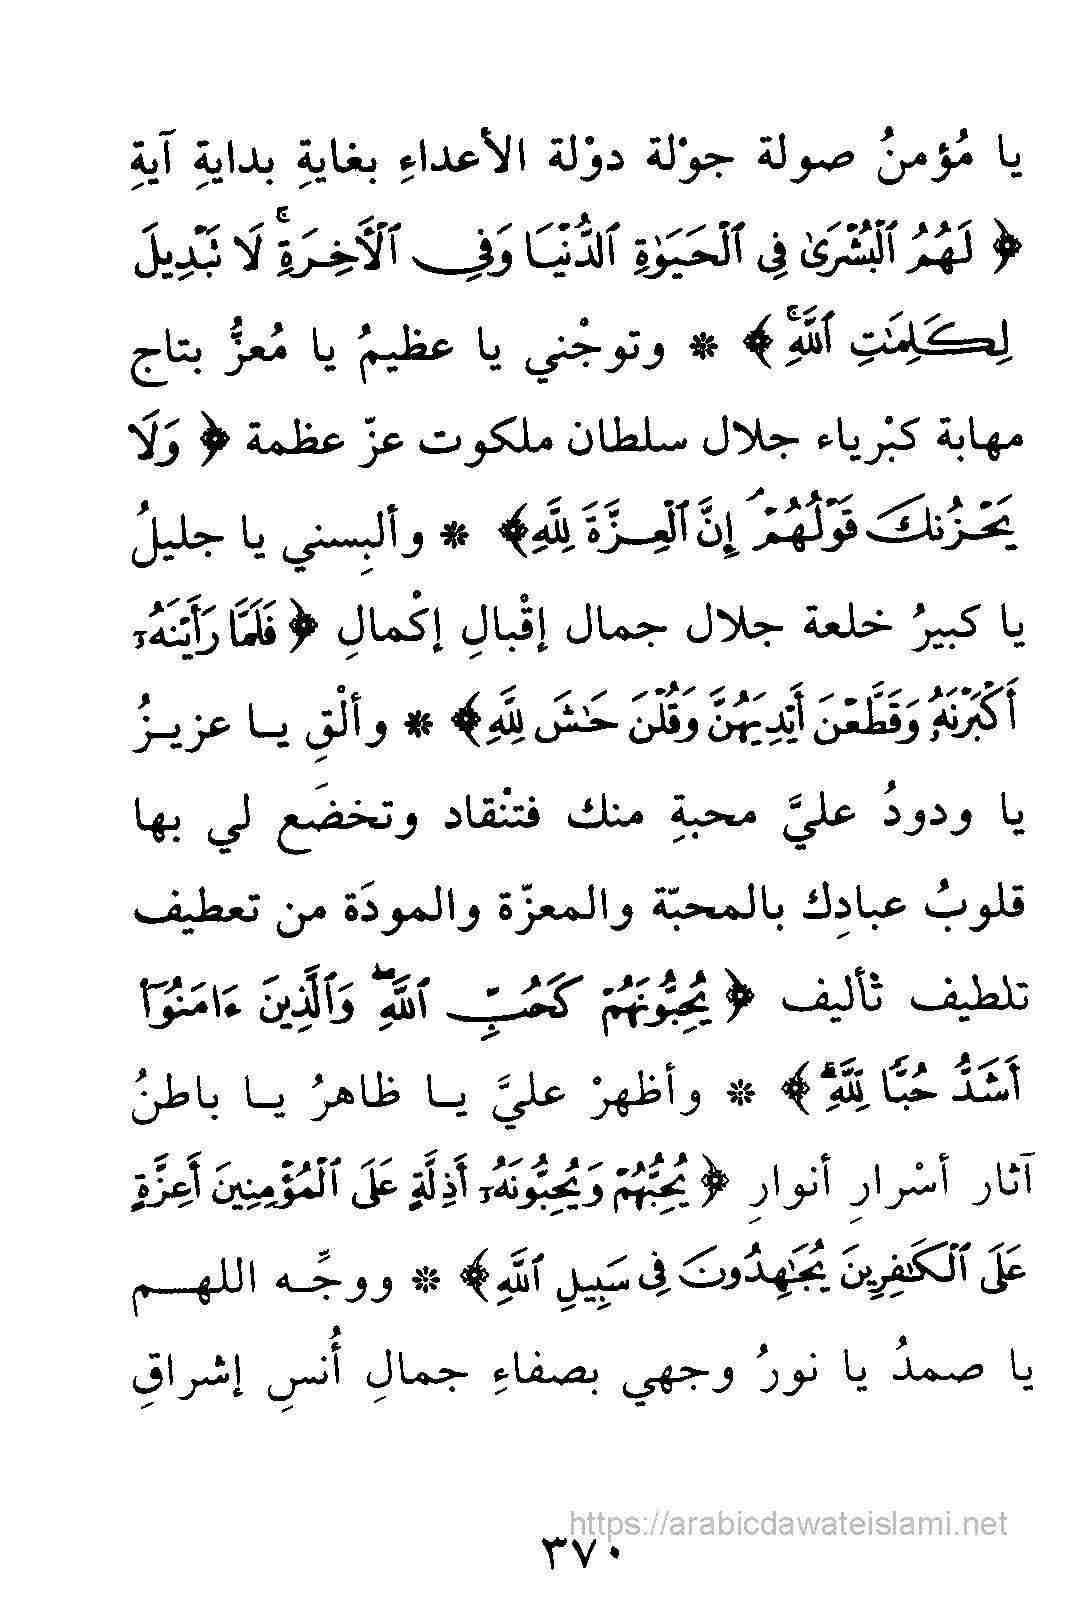 يا مُؤمنُ صولة جوْلة دوْلة الأعداءِ بغايةِ بدايةِ آيةِ
﴿ لَهُمُ ٱلْبُشْرَىٰ فِى ٱلْحَيَوٰةِ ٱلدُّنْيَا وَفِى ٱلْأَخِرَةِ ۚ لَا تَبْدِيلَ
لِكَلِمَٰتِ ٱللَّهِ ۚ ﴾ * وتوجْني يا عظيمُ يا مُعزُّ بتاج
مهابة كبْرياء جلال سلطان ملكوت عزّ عظمة ﴿ وَلَا
يَحْزُنكَ قَوْلُهُمْ ۘ إِنَّ ٱلْعِزَّةَ لِلَّهِ ﴾ * وألبِسني يا جليلُ
يا كبيرُ خلعة جلال جمال إقْبالِ إكْمالِ ﴿ فَلَمَّا رَأَيْنَهُۥٓ
أَكْبَرْنَهُۥ وَقَطَّعْنَ أَيْدِيَهُنَّ وَقُلْنَ حَٰشَ لِلَّهِ ﴾ * وألْقِ يـا عزيـزُ
يا ودودُ عليَّ محبةِ منك فتنْقاد وتخضَع لي بها
قلوبُ عبادِك بالمحبّة والمعزّة والمودَة من تعطيف
تلطيف تْأليف ﴿ يُحِبُّونَهُمْ كَحُبِّ ٱللَّهِ ۖ وَٱلَّذِينَ ءَامَنُوٓا۟
أَشَدُّ حُبًّا لِّلَّهِ ۗ ﴾ * وأظهرْ عليَّ يـا ظاهرُ يـا باطنُ
آثار أسْرارِ أنوارِ ﴿ يُحِبُّهُمْ وَيُحِبُّونَهُۥٓ أَذِلَّةٍ عَلَى ٱلْمُؤْمِنِينَ أَعِزَّةٍ
عَلَى ٱلْكَٰفِرِينَ يُجَٰهِدُونَ فِى سَبِيلِ ٱللَّهِ ﴾ * ووجِّـه اللهـــم
يا صمدُ يا نورُ وجهي بصفاءِ جمالِ أُنسِ إشراقِ
https://arabicdawateislami.net
٣٧٠